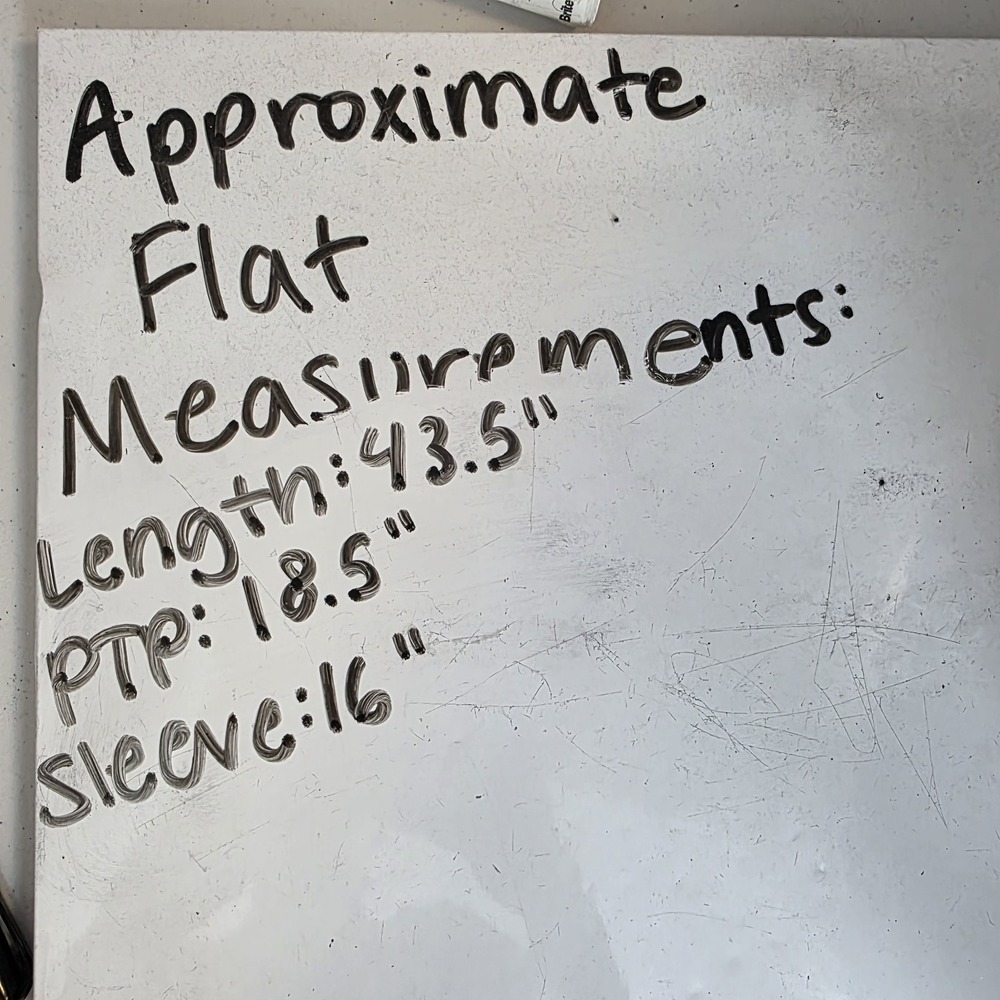 Brite
Approximate
Flat
Measurements:
Length: 43.5"
PTP: 18.5"
Sleeve: 16"